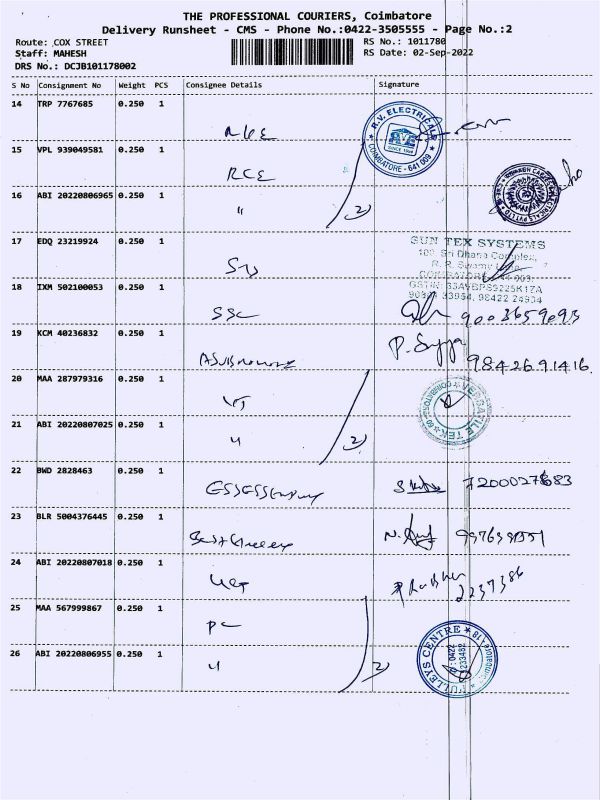 THE PROFESSIONAL COURIERS, Coimbatore
Delivery Runsheet - CMS - Phone No.:0422-3505555 - Page No.:2
Route: COX STREET
RS No.: 1011780
Staff: MAHESH
RS Date: 02-Sep-2022
DRS No.: DCJB101178002
S No Consignment No Weight PCS Consignee Details Signature
14 TRP 7767685 0.250 1
R.V. ELECTRICALS
RVE
SINCE 1994
COIMBATORE - 641 009
15 VPL 939049581 0.250 1
RCE
16 ABI 20220806965 0.250 1
" 2
17 EDQ 23219924 0.250 1
SUN TEX SYSTEMS
100, Sri Dhana Complex,
18 IXM 502100053 0.250 1
SSC
9003659093
19 KCM 40236832 0.250 1
9842691416
20 MAA 287979316 0.250 1
VT
VERSATILE TEK
21 ABI 20220807025 0.250 1
" 2
22 BWD 2828463 0.250 1
23 BLR 5004376445 0.250 1
24 ABI 20220807018 0.250 1
2237386
25 MAA 567999867 0.250 1
PC
PULLEYS CENTRE
26 ABI 20220806955 0.250 1
" 2